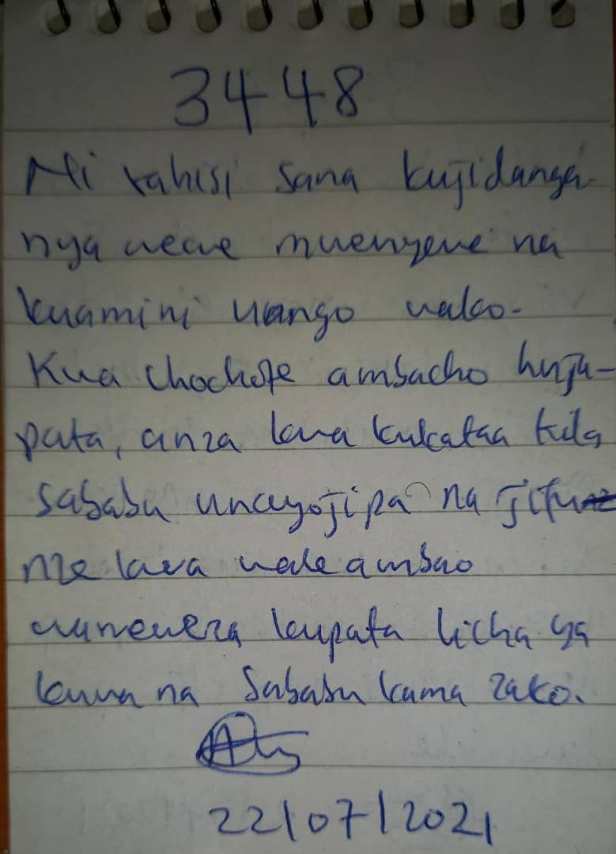 3448
Ni rahisi sana kujidanga-
nya wewe mwenyewe na
kuamini uongo wako.
Kwa chochote ambacho huja-
pata, anza kwa kukataa kila
sababu unayojipa na jifu
nze kwa wale ambao
wameweza kupata licha ya
kuwa na sababu kama zako.
22/07/2021